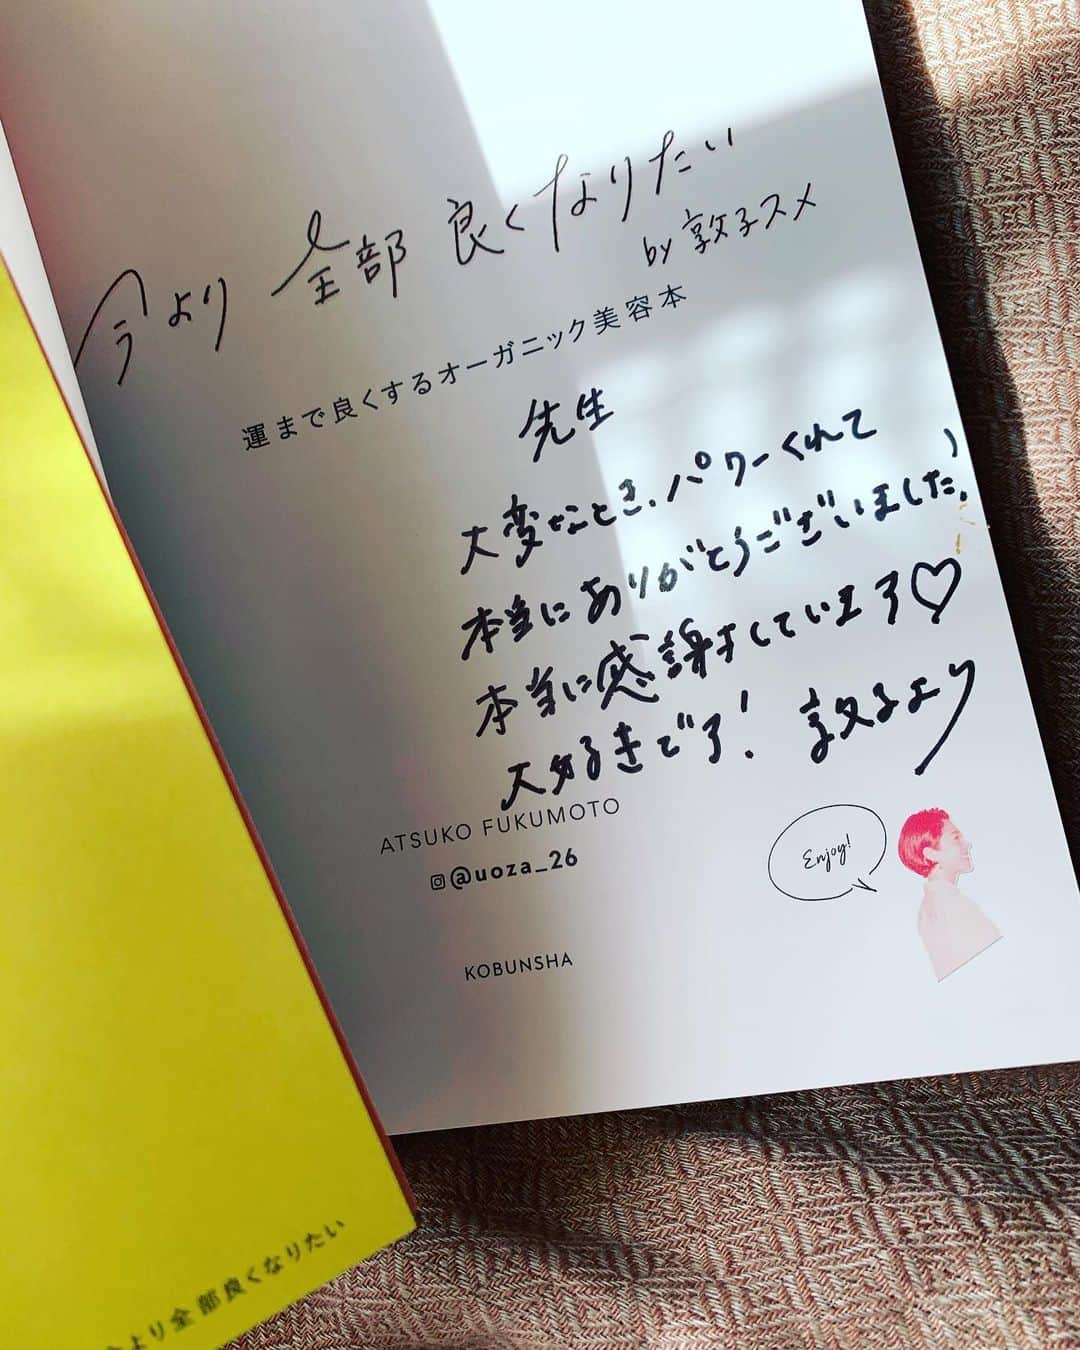 今より 全部 良くなりたい
by 敦子スメ
運まで良くするオーガニック美容本
先生
大変なとき、パワーくれて
本当にありがとうございました、
本当に感謝をしています♡
大好きです! 敦子より
ATSUKO FUKUMOTO
@uoza_26
Enjoy!
KOBUNSHA
今より全部良くなりたい